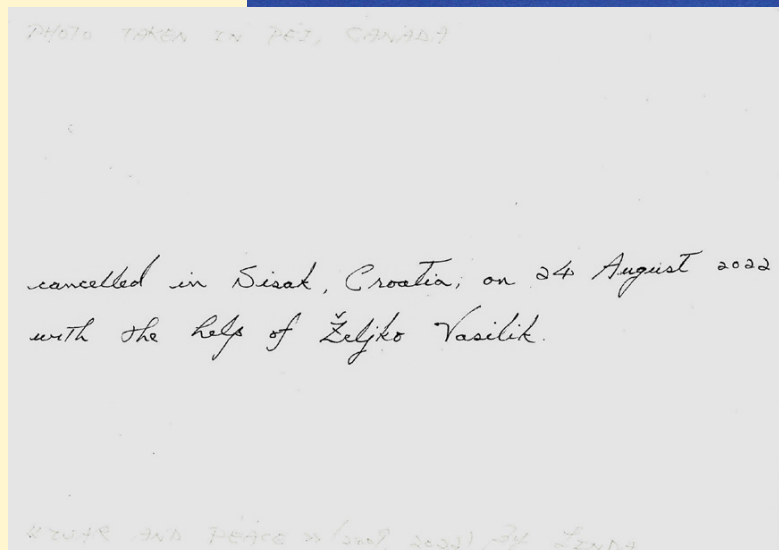 PHOTO TAKEN IN PEI, CANADA
cancelled in Sisak, Croatia, on 24 August 2022
with the help of Željko Vasilik.
AND PEACE » BY LINDA